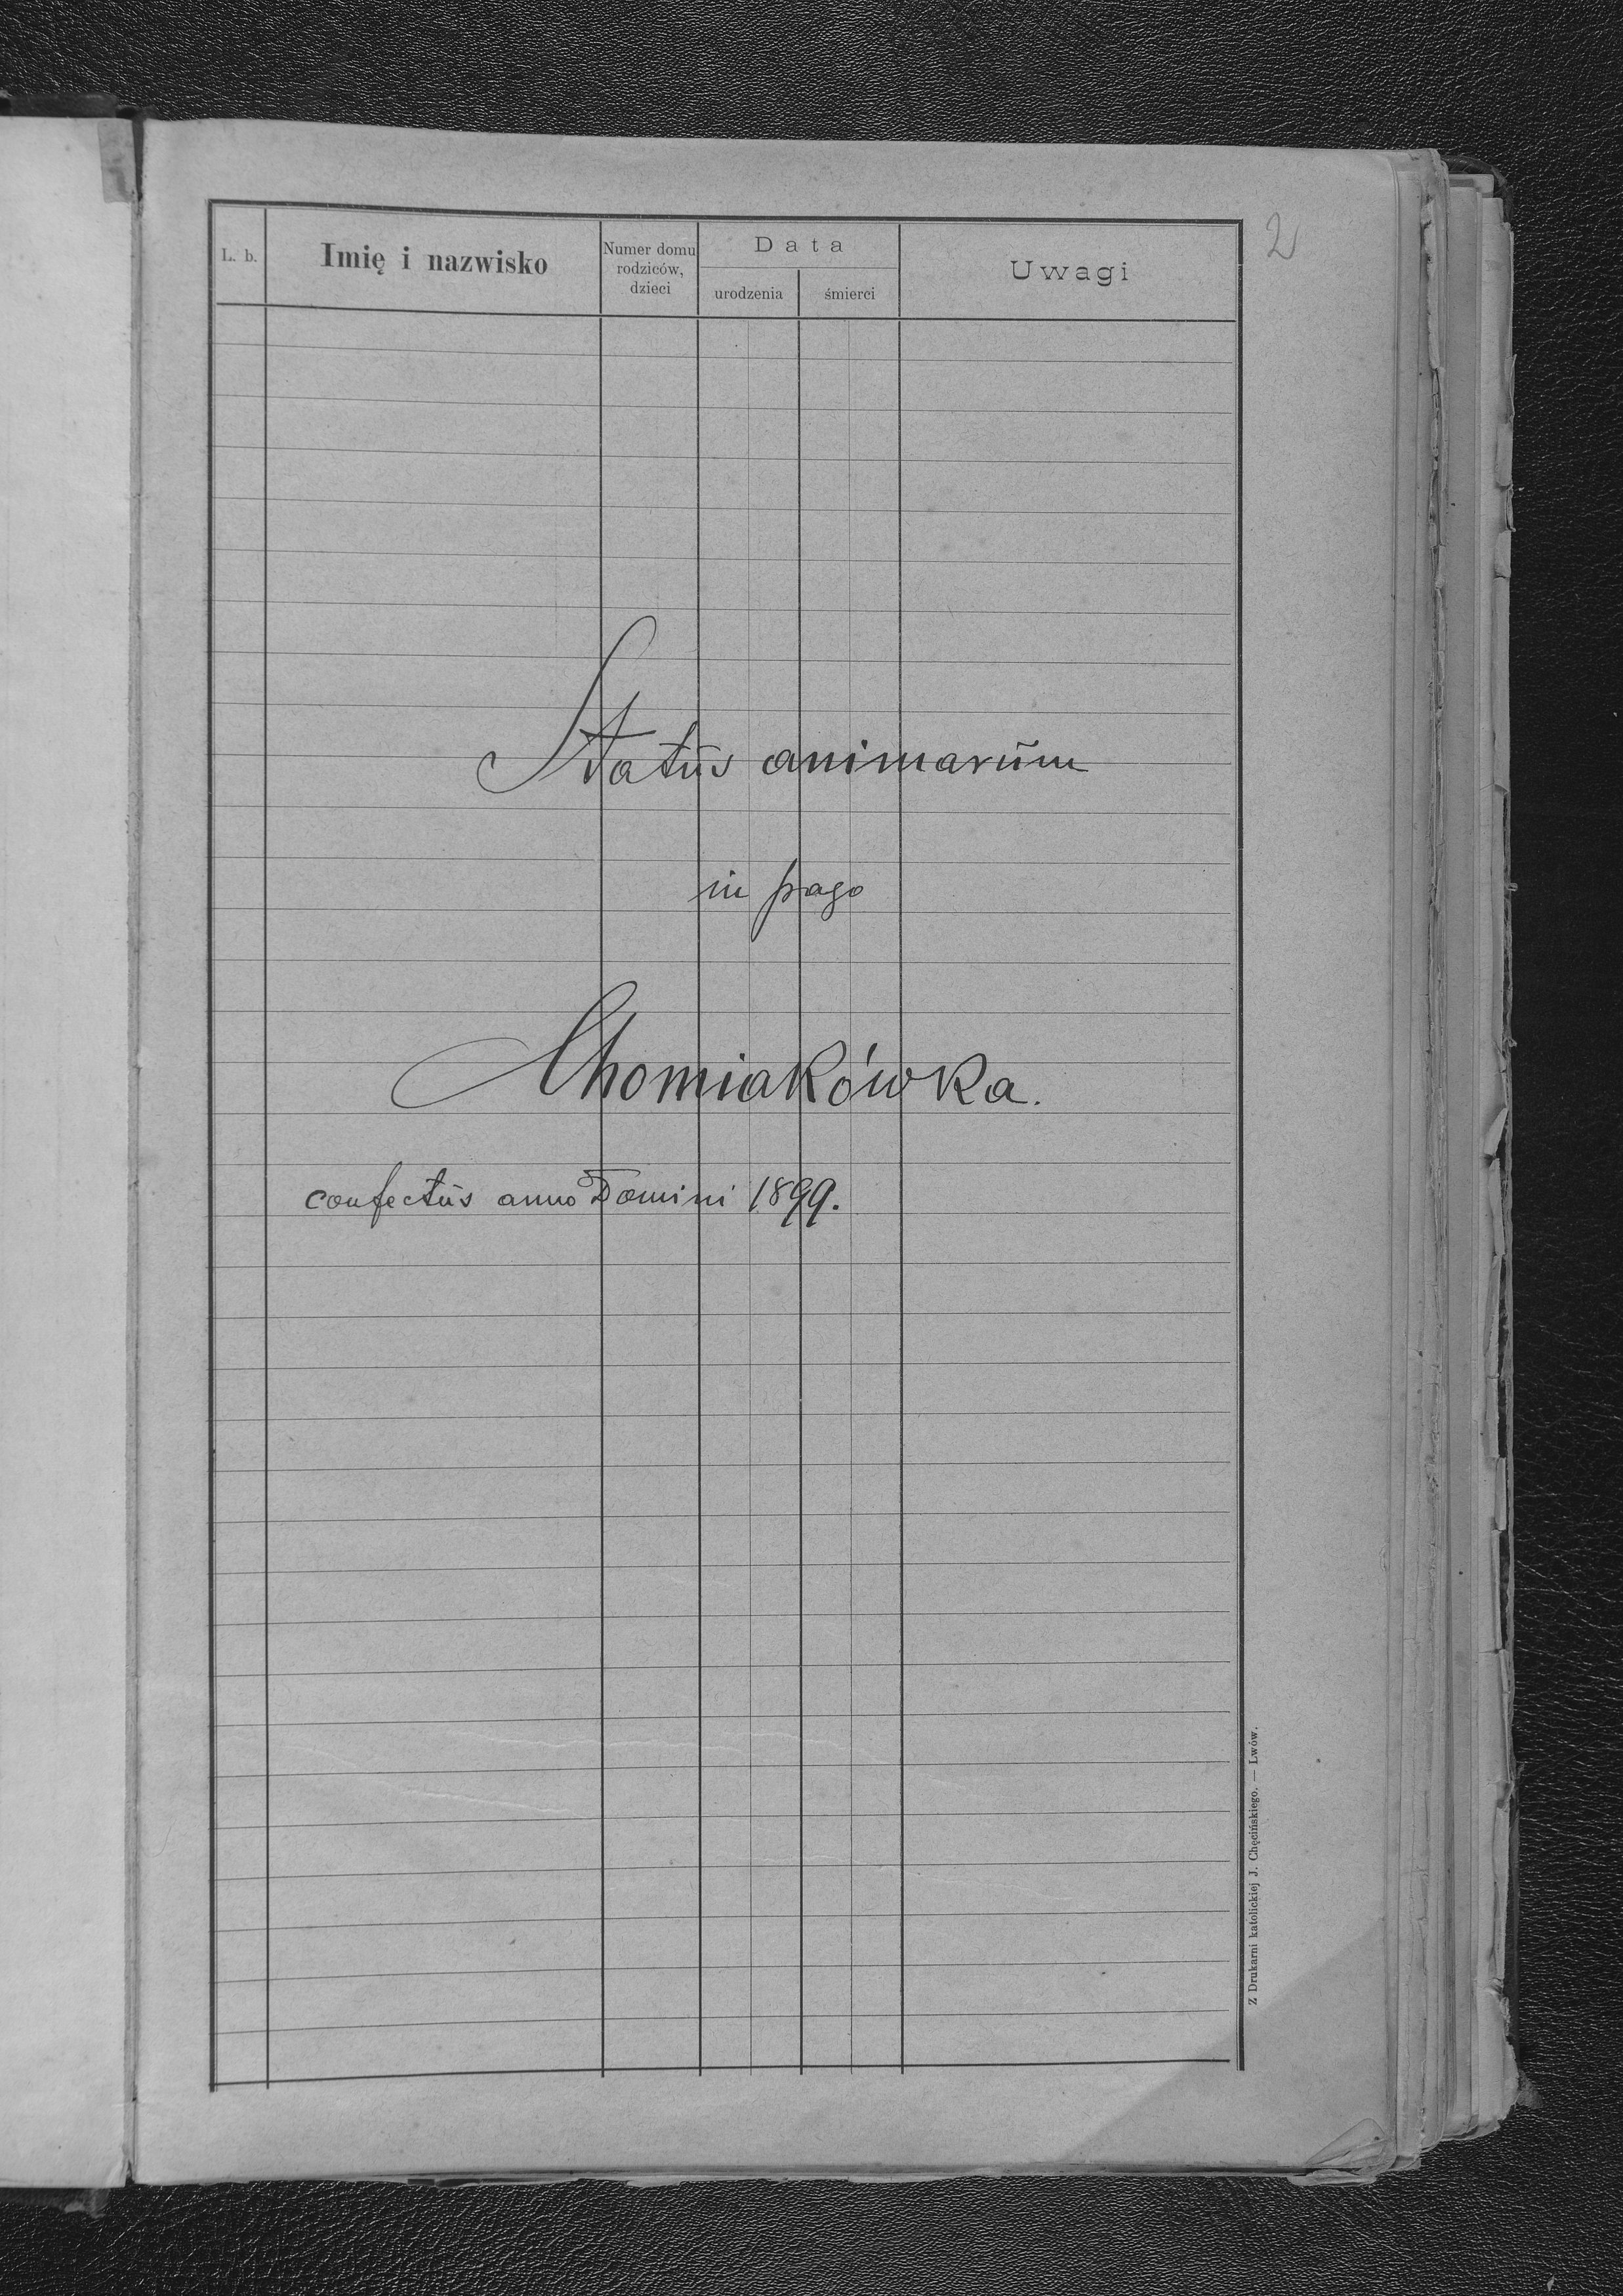 2
L. b.
Imię i nazwisko
Numer domu
rodziców,
dzieci
Data
urodzenia
śmierci
Uwagi
Statŭs animarŭm
in pago
Chomiakówka.
confectŭs anno Domini 1899.
Z Drukarni katolickiej J. Chęcińskiego. — Lwów.